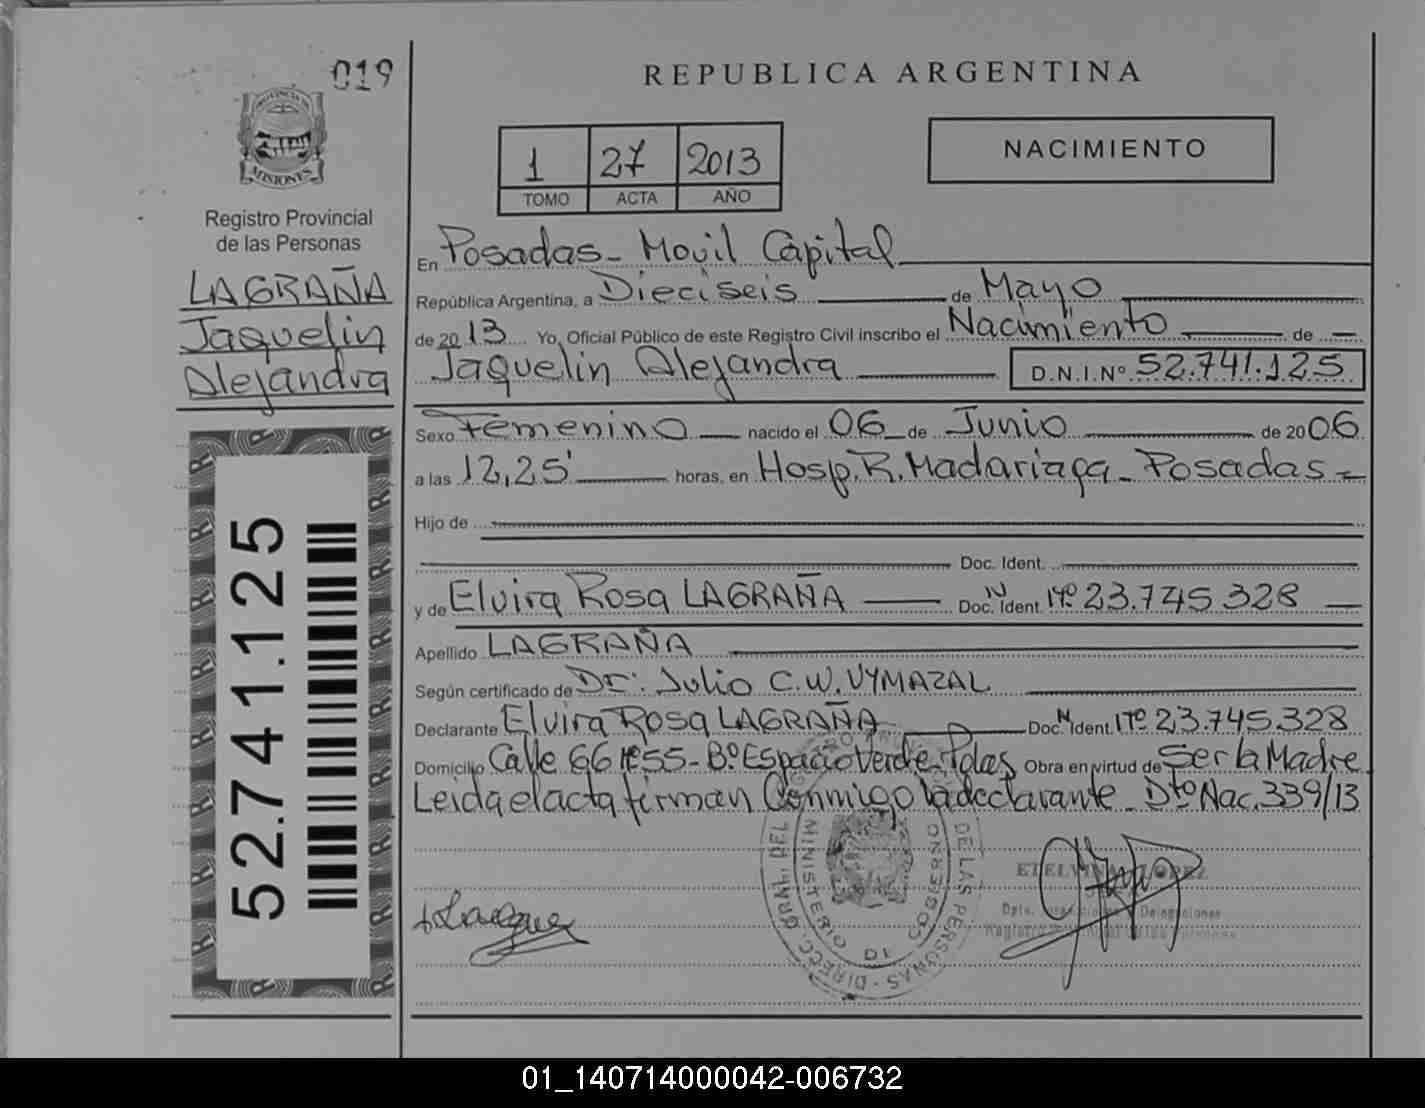 019
REPUBLICA ARGENTINA
PROVINCIA DE
MISIONES
1 27 2013
TOMO ACTA AÑO
NACIMIENTO
Registro Provincial
de las Personas
LAGRAÑA
Jaquelin
Alejandra
52.741.125
En Posadas - Movil Capital
República Argentina, a Dieciseis de Mayo
de 2013 Yo, Oficial Público de este Registro Civil inscribo el Nacimiento de
Jaquelin Alejandra D.N.I.Nº 52.741.125
Sexo Femenino nacido el 06 de Junio de 2006
a las 12,25' horas, en Hosp. R. Madariaga - Posadas -
Hijo de
Doc. Ident.
y de Elvira Rosa LAGRAÑA Doc. N Ident. Nº 23.745.328
Apellido LAGRAÑA
Según certificado de Dr: Julio C.W. VYMAZAL
Declarante Elvira Rosa LAGRAÑA Doc. N Ident. Nº 23.745.328
Domicilio Calle 66 Nº 55 - Bº Espacio Verde Pdas Obra en virtud de Ser la Madre
Leida el acta firman Conmigo la declarante - Dto Nac. 339/13
DIRECC. GRAL. DEL REGISTRO PROV. DE LAS PERSONAS
MINISTERIO DE GOBIERNO
ETELVINA LOPEZ
Dpto. Inspecciones y Delegaciones
01_140714000042-006732